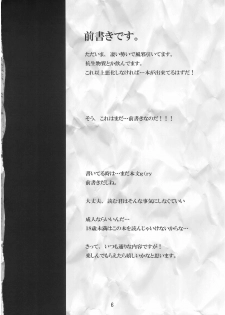 前書きです。
ただいま、凄い勢いで風邪引いてます。
抗生物質とか飲んでます。
これ以上悪化しなければ…本が出来てるはずだ!
そう、これはまだ…前書きなのだ!!!
書いてる時は…まだ本文ry
前書きだしね。
大丈夫、読む君はそんな事気にしなくていい
成人ならいいんだ…
18歳未満はこの本を読んじゃいけないからな…
さって、いつも通りな内容ですが!
楽しんでもらえたら嬉しいかなと思います。
6